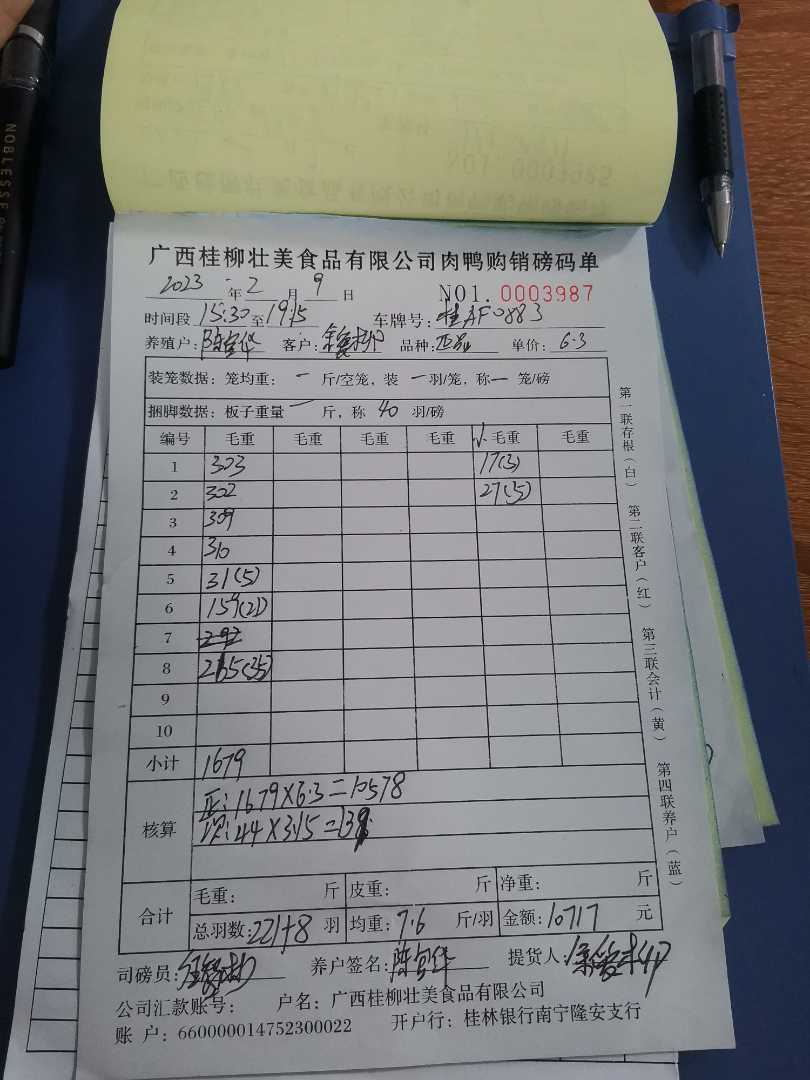 NOBLESSE
NO1.0003985
广西桂柳壮美食品有限公司肉鸭购销磅码单
2023年2月9日 NO1.0003987
时间段 15:30至19:15 车牌号:桂AF0883
养殖户: 客户: 品种:正品 单价:6.3
装笼数据:笼均重:一斤/空笼,装一羽/笼,称一笼/磅
捆脚数据:板子重量一斤,称40羽/磅
编号 毛重 毛重 毛重 毛重 小毛重 毛重
1 303 17(3)
2 302 27(5)
3 309
4 310
5 31(5)
6 159(21)
7 292
8 265(35)
9
10
小计 1679
核算 正:1679×6.3=10578
次:44×3.15=139
合计 毛重: 斤 皮重: 斤 净重: 斤
总羽数:221+8羽 均重:7.6斤/羽 金额:10717元
司磅员: 养户签名: 提货人:
公司汇款账号: 户名:广西桂柳壮美食品有限公司
账户:660000014752300022 开户行:桂林银行南宁隆安支行
第一联存根(白)
第二联客户(红)
第三联会计(黄)
第四联养户(蓝)